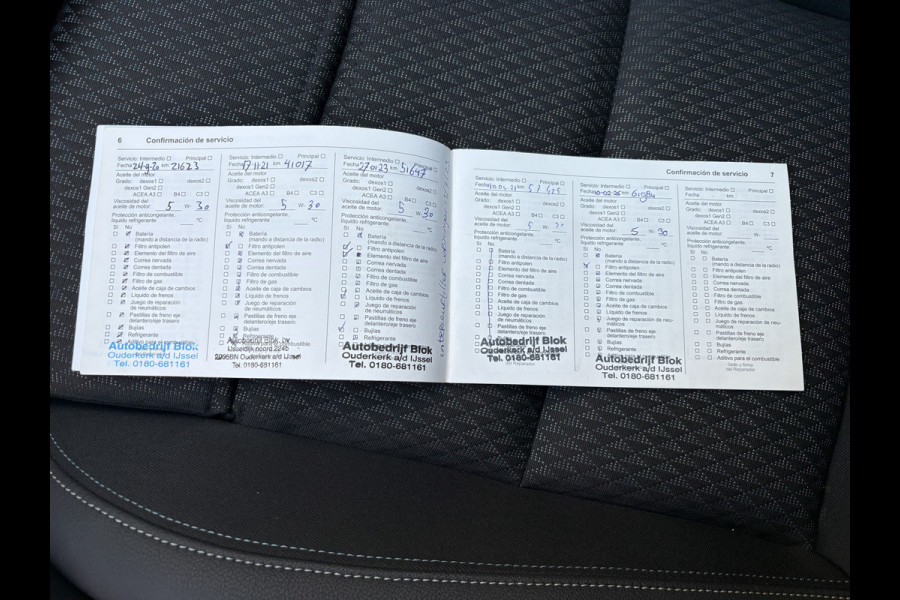 6 Confirmación de servicio
Servicio: Intermedio Principal
Fecha 24-9-20 km 21623
Aceite del motor
Grado: dexos1 dexos2
dexos1 Gen2
ACEA A3 B4 C3
Viscosidad del
aceite de motor: 5 W- 30
Protección anticongelante,
líquido refrigerante °C
Sí No
Batería
(mando a distancia de la radio)
Filtro antipolen
Elemento del filtro de aire
Correa nervada
Correa dentada
Filtro de combustible
Filtro de gas
Aceite de caja de cambios
Líquido de frenos
Juego de reparación
de neumáticos
Pastillas de freno eje
delantero/eje trasero
Bujías
Refrigerante
Autobedrijf Blok
Ouderkerk a/d IJssel
Tel. 0180-681161
Servicio: Intermedio Principal
Fecha 17-11-21 km 41017
Aceite del motor
Grado: dexos1 dexos2
dexos1 Gen2
ACEA A3 B4 C3
Viscosidad del
aceite de motor: 5 W- 30
Protección anticongelante,
líquido refrigerante °C
Sí No
Batería
(mando a distancia de la radio)
Filtro antipolen
Elemento del filtro de aire
Correa nervada
Correa dentada
Filtro de combustible
Filtro de gas
Aceite de caja de cambios
Líquido de frenos
Juego de reparación
de neumáticos
Pastillas de freno eje
delantero/eje trasero
Bujías
Refrigerante
Autobedrijf Blok bv
IJsseldijk noord 224b
Ouderkerk a/d IJssel
Servicio: Intermedio Principal
Fecha km 51647
Aceite del motor
Grado: dexos1 dexos2
dexos1 Gen2
ACEA A3 B4 C3
Viscosidad del
aceite de motor: 5 W- 30
Protección anticongelante,
líquido refrigerante °C
Sí No
Batería
(mando a distancia de la radio)
Filtro antipolen
Elemento del filtro de aire
Correa nervada
Correa dentada
Filtro de combustible
Filtro de gas
Aceite de caja de cambios
Líquido de frenos
Juego de reparación
de neumáticos
Pastillas de freno eje
delantero/eje trasero
Bujías
Refrigerante
Autobedrijf Blok
Ouderkerk a/d IJssel
Tel. 0180-681161
Confirmación de servicio 7
Servicio: Intermedio Principal
Fecha km
Aceite del motor
Grado: dexos1 dexos2
dexos1 Gen2
ACEA A3 B4 C3
Viscosidad del
aceite de motor: 5 W-
Protección anticongelante,
líquido refrigerante °C
Sí No
Batería
(mando a distancia de la radio)
Filtro antipolen
Elemento del filtro de aire
Correa nervada
Correa dentada
Filtro de combustible
Filtro de gas
Aceite de caja de cambios
Líquido de frenos
Juego de reparación
de neumáticos
Pastillas de freno eje
delantero/eje trasero
Bujías
Autobedrijf Blok
Ouderkerk a/d IJssel
Tel. 0180-681161
del Reparador
Servicio: Intermedio Principal
Fecha km
Aceite del motor
Grado: dexos1 dexos2
dexos1 Gen2
ACEA A3 B4 C3
Viscosidad del
aceite de motor: 5 W- 30
Protección anticongelante,
líquido refrigerante °C
Sí No
Batería
(mando a distancia de la radio)
Filtro antipolen
Elemento del filtro de aire
Correa nervada
Correa dentada
Filtro de combustible
Filtro de gas
Aceite de caja de cambios
Líquido de frenos
Juego de reparación de neu-
máticos
Pastillas de freno eje
delantero/eje trasero
Bujías
Refrigerante
Autobedrijf Blok
Ouderkerk a/d IJssel
Tel. 0180-681161
Servicio: Intermedio Principal
Fecha km
Aceite del motor
Grado: dexos1 dexos2
dexos1 Gen2
ACEA A3 B4 C3
Viscosidad del
aceite de motor: W-
Protección anticongelante,
líquido refrigerante °C
Sí No
Batería
(mando a distancia de la radio)
Filtro antipolen
Elemento del filtro de aire
Correa nervada
Correa dentada
Filtro de combustible
Filtro de gas
Aceite de caja de cambios
Líquido de frenos
Juego de reparación de neu-
máticos
Pastillas de freno eje
delantero/eje trasero
Bujías
Refrigerante
Aditivo para el combustible
Sello y firma
del Reparador